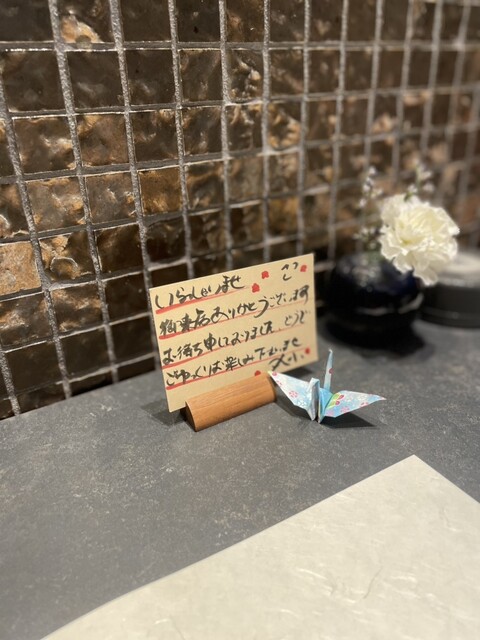 いらっしゃいませ
御来店ありがとうございます
お待ち申しておりました どうぞ
ごゆっくりお楽しみ下さいませ